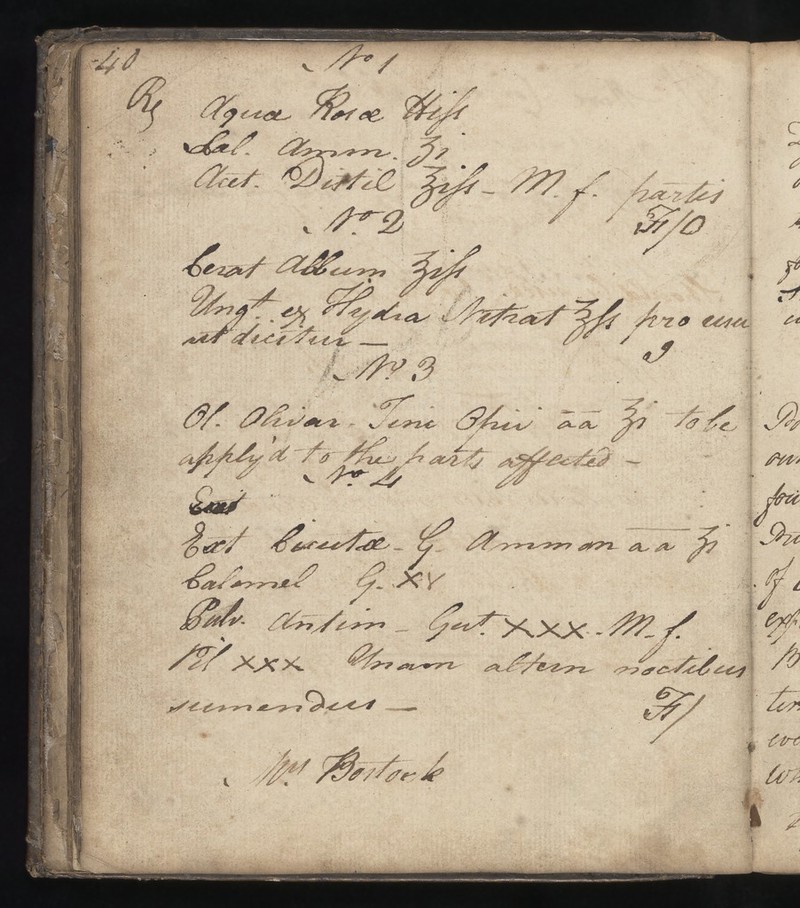 40
No 1
Rx Aquæ Rosæ ℔iſs
Sal. Amm. ʒi
Acet. Distil ʒiſs - M. f. partis
No. 2
F/0
Cerat Album ʒiſs
Ungt. ex Hydra Nitrat ʒſs pro usu
ut dicitur —
9
No 3
Ol. Olivar. Tinc Opii aa ʒi to be
apply'd to the parts affected -
No. 4
Ext Cicutæ - G. Ammon aa ʒi
Calomel G. xv
Pulv. Antim - Gut. xxx. M. f.
Pil xxx Unam altern noctibus
sumendus —
F/
Bostock